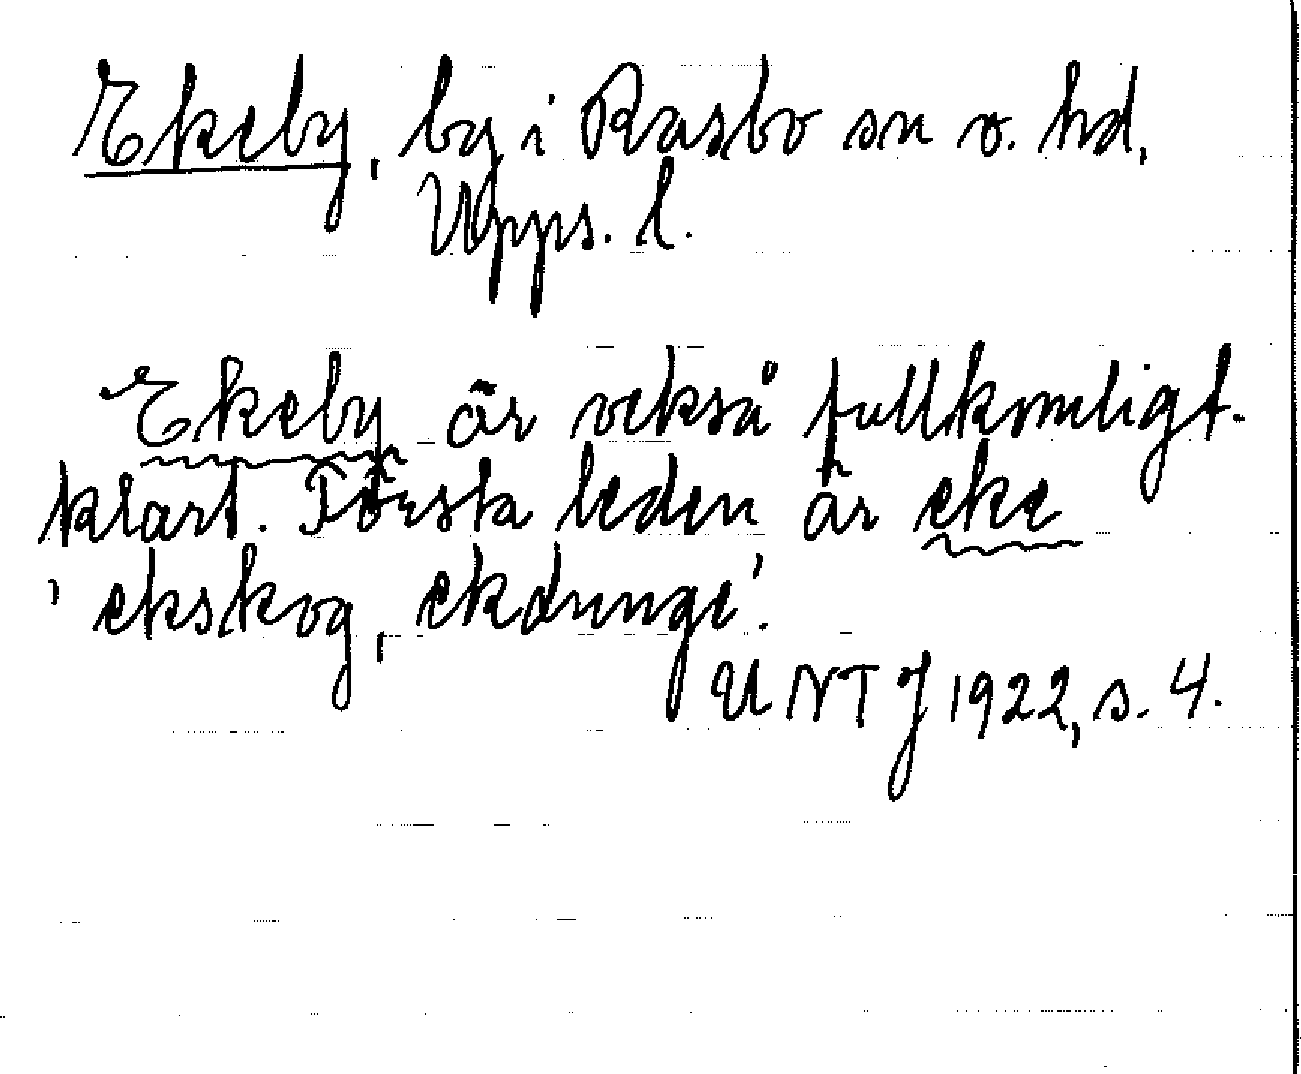 Ekeby, by i Rasbo sn o. hd,
Upps. l.
Ekeby är också fullkomligt
klart. Första leden är eke
'ekskog, ekdunge'.
UNTJ 1922, s. 4.